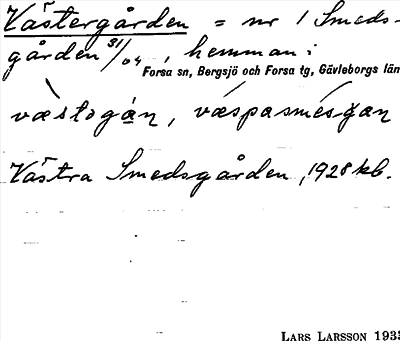 Västergården = nr 1 Smeds-
gården 31/04, hemman i
Forsa sn, Bergsjö och Forsa tg, Gävleborgs län
væstogán, væspasmésgan
Västra Smedsgården, 1928 kb.
LARS LARSSON 1933